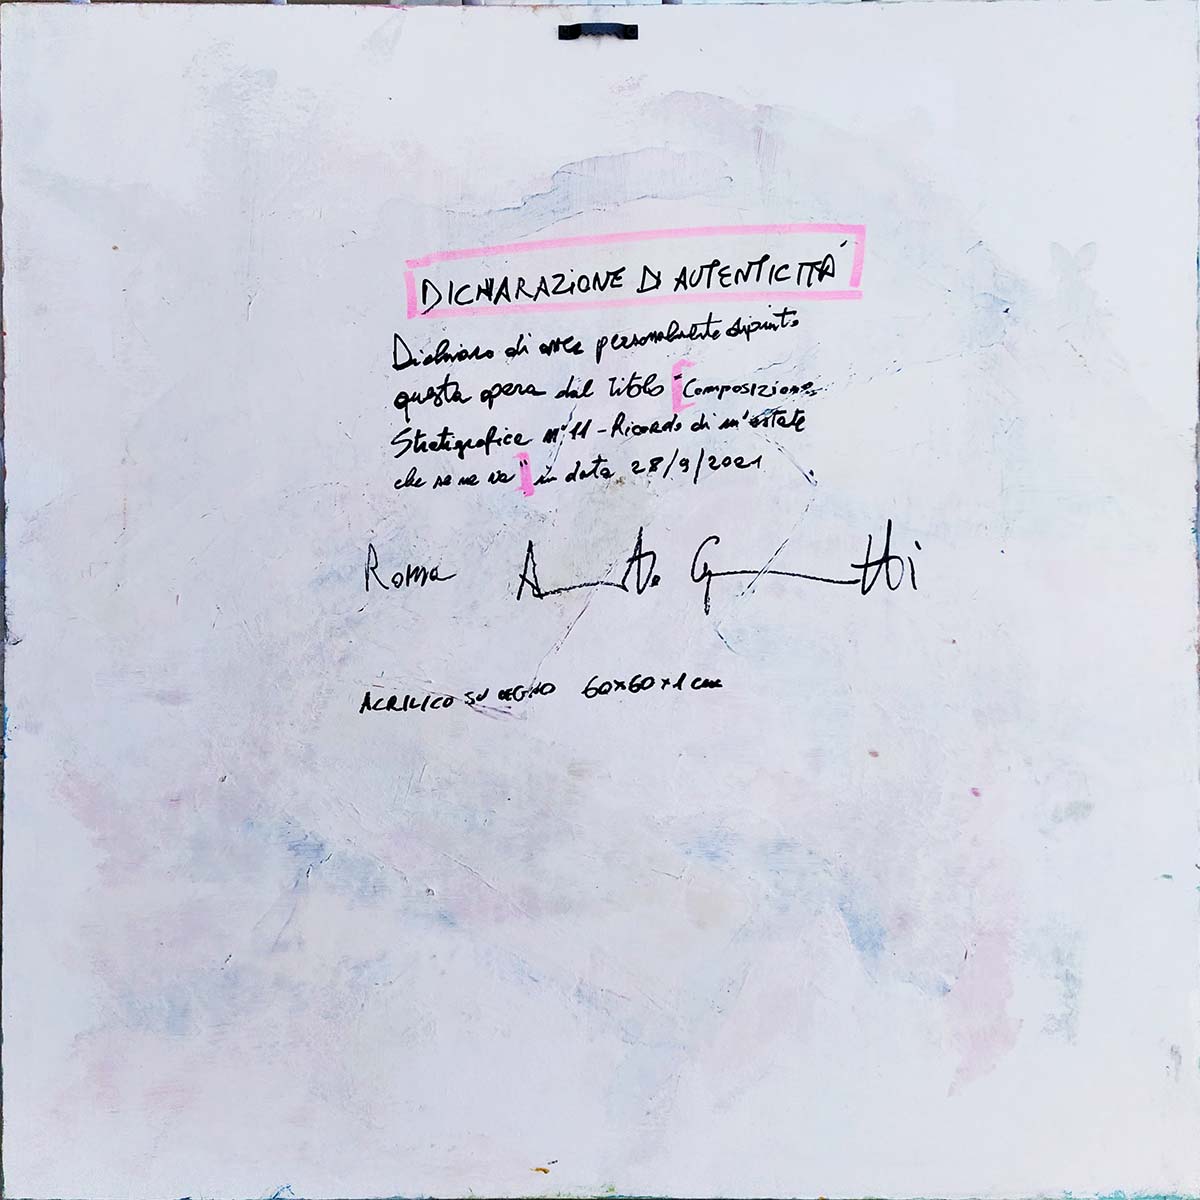 DICHIARAZIONE DI AUTENTICITÀ
Dichiaro di aver personalmente dipinto
questa opera dal Titolo "Composizione
Stratigrafica n° 11 - Ricordo di un'estate
che se ne va" in data 28/9/2021
Roma
ACRILICO SU LEGNO 60x60x1 cm